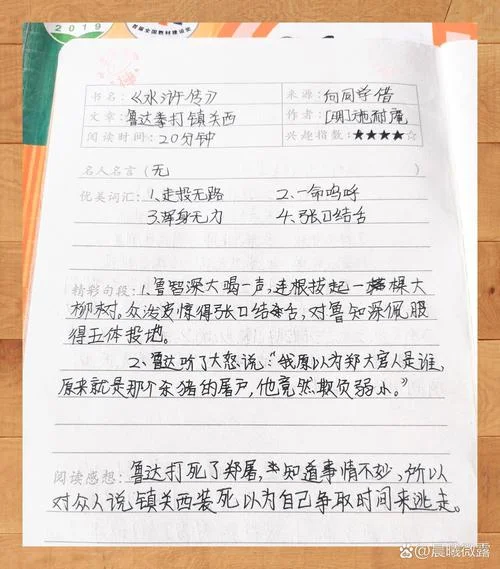 2019
首届全国教材建设奖
书名：《水浒传》 来源：向同学借
文章：鲁达拳打镇关西 作者：[明]施耐庵
阅读时间：20分钟 兴趣指数：★★★★☆
名人名言（无
优美词汇：1、走投无路 2、一命呜呼
3、浑身无力 4、张口结舌
精彩句段：1、鲁智深大喝一声，连根拔起一棵大
柳树。众泼皮惊得张口结舌，对鲁知深佩服
得五体投地。
2、鲁达听了大怒说：“我原以为郑大官人是谁，
原来就是那个杀猪的屠户，他竟然欺负弱小。”
阅读感想：鲁达打死了郑屠，知道事情不妙，所以
对众人说镇关西装死以为自己争取时间来逃走。
百家号@晨曦微露